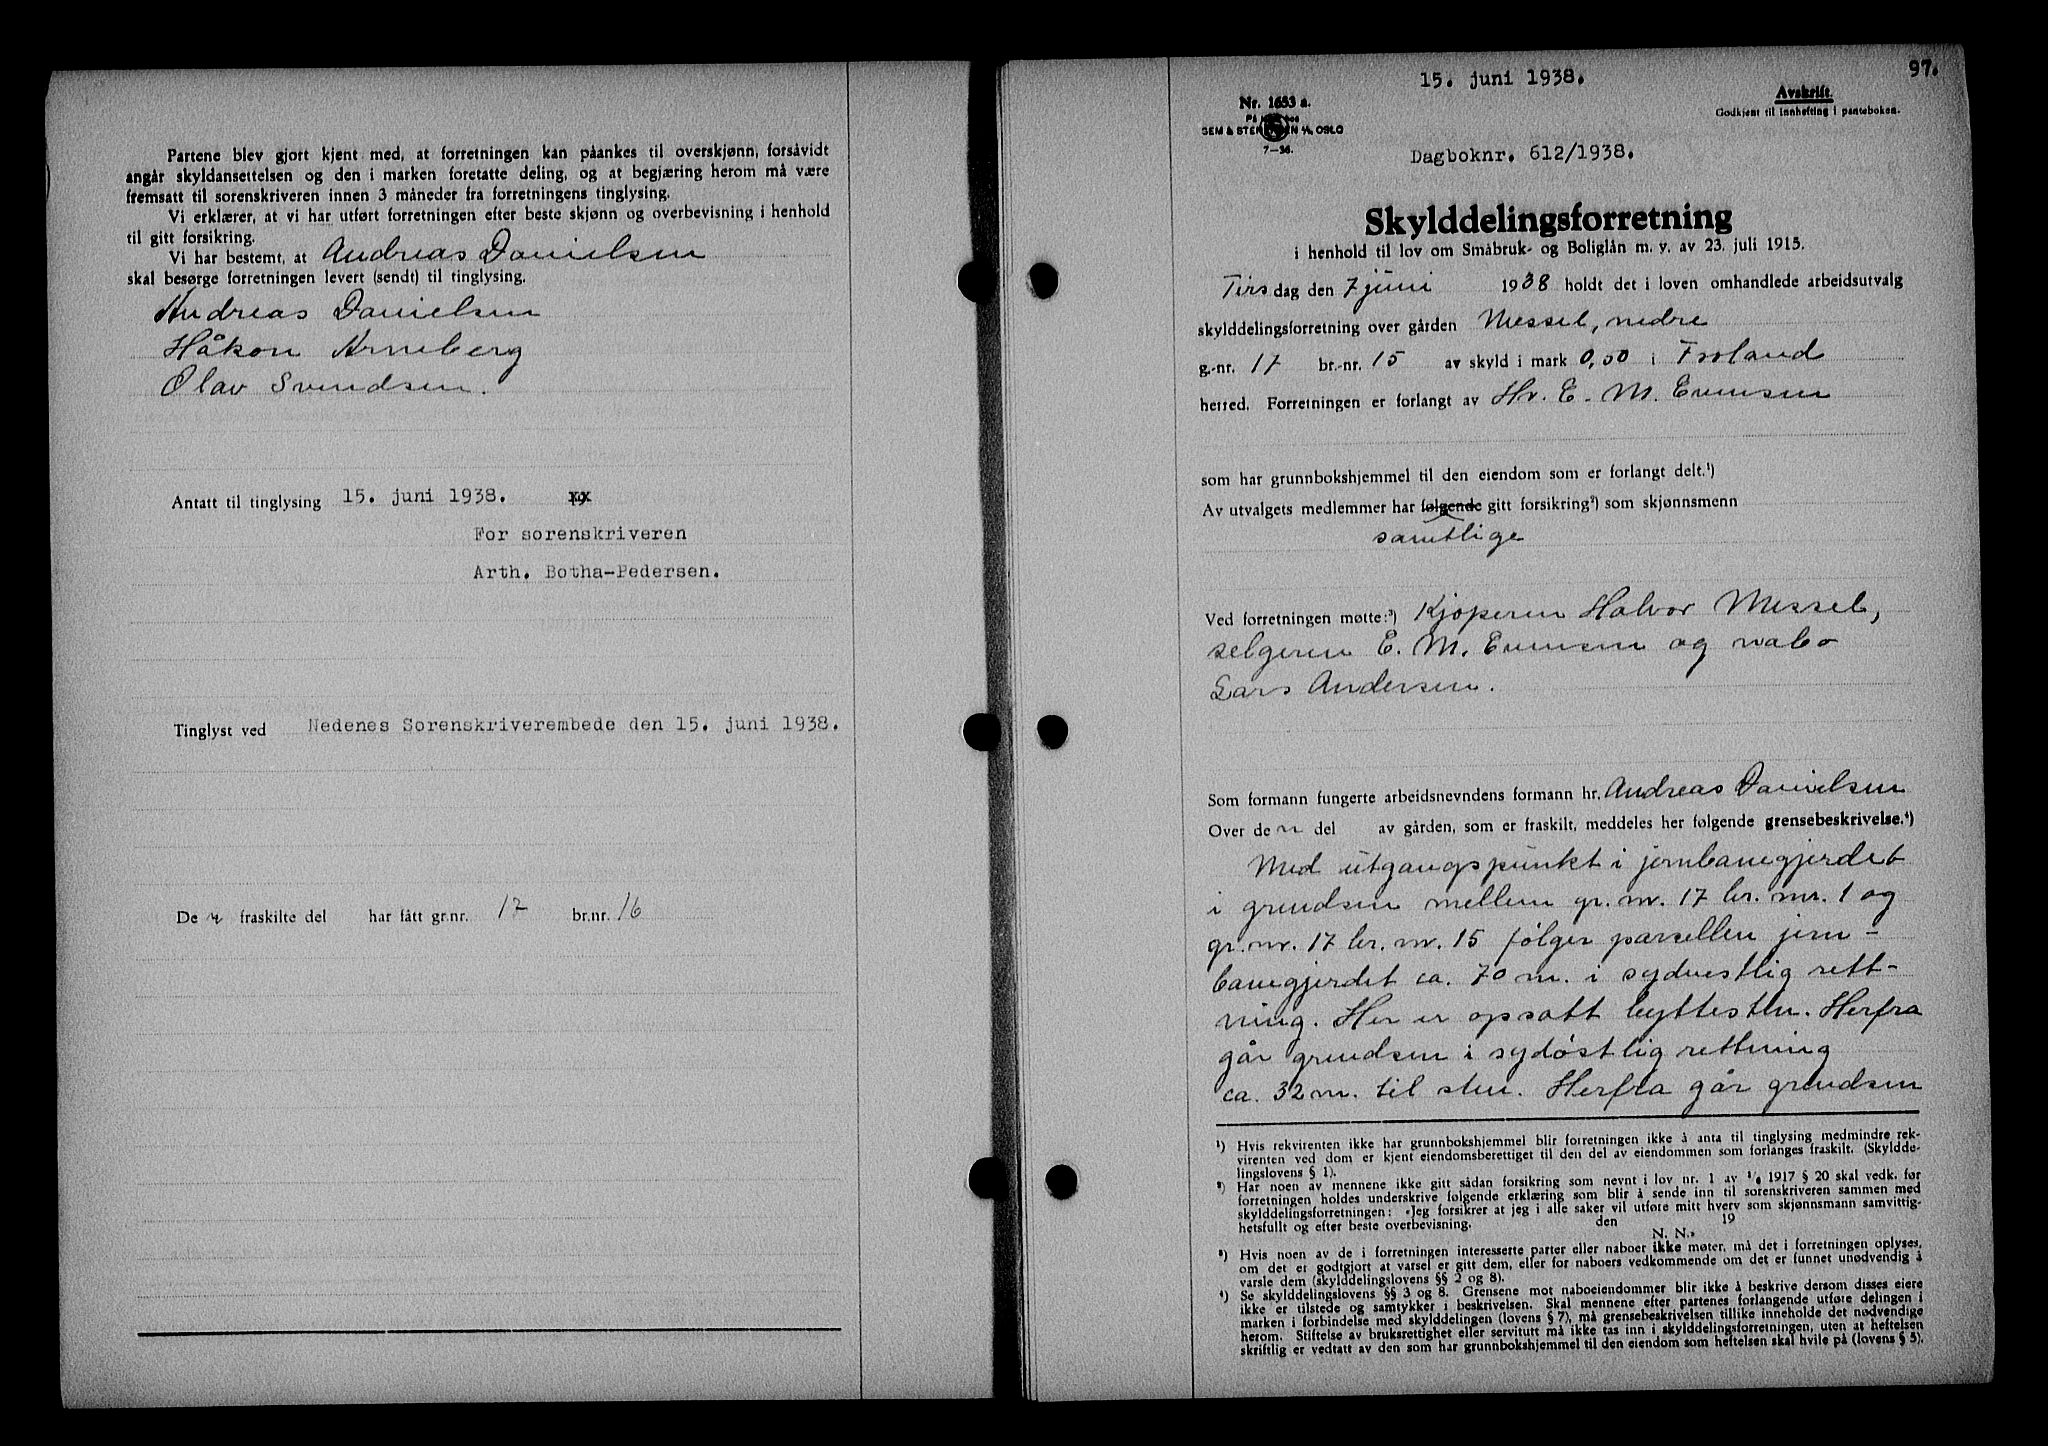 Partene blev gjort kjent med, at forretningen kan påankes til overskjønn, forsåvidt
angår skyldansettelsen og den i marken foretatte deling, og at begjæring herom må være
fremsatt til sorenskriveren innen 3 måneder fra forretningens tinglysing.
Vi erklærer, at vi har utført forretningen efter beste skjønn og overbevisning i henhold
til gitt forsikring.
Vi har bestemt, at Andreas Danielsen
skal besørge forretningen levert (sendt) til tinglysing.
Andreas Danielsen
Håkon Arneberg
Olav Svendsen.
Antatt til tinglysing 15. juni 1938.
For sorenskriveren
Arth. Botha-Pedersen.
Tinglyst ved Nedenes Sorenskriverembede den 15. juni 1938.
De n fraskilte del har fått gr.nr. 17 br.nr. 16
97.
15. juni 1938.
Nr. 1653 a.
Avskrift.
Godkjent til innhefting i panteboken.
SEM & STENERSEN A/S, OSLO
7—36.
Dagboknr. 612/1938.
Skylddelingsforretning
i henhold til lov om Småbruk- og Boliglån m. v. av 23. juli 1915.
Tirsdag den 7 juni 1938 holdt det i loven omhandlede arbeidsutvalg
skylddelingsforretning over gården Messel, nedre
g.-nr. 17 br.-nr. 15 av skyld i mark 0,50 i Froland
herred. Forretningen er forlangt av Hr. E. M. Evensen
som har grunnbokshjemmel til den eiendom som er forlangt delt.¹)
Av utvalgets medlemmer har følgende gitt forsikring²) som skjønnsmenn
samtlige
Ved forretningen møtte:³) Kjøperen Halvor Messel,
selgeren E. M. Evensen og nabo
Lars Andersen.
Som formann fungerte arbeidsnevndens formann hr. Andreas Danielsen
Over de n del av gården, som er fraskilt, meddeles her følgende grensebeskrivelse.⁴)
Med utgangspunkt i jernbanegjerdet
i grendsen mellem gr. nr. 17 br. nr. 1 og
gr. nr. 17 br. nr. 15 følger parsellen jern-
banegjerdet ca. 70 m. i sydvestlig rett-
ning. Her er opsatt byttesten. Herfra
går grendsen i sydøstlig rettning
ca. 32 m. til sten. Herfra går grendsen
¹) Hvis rekvirenten ikke har grunnbokshjemmel blir forretningen ikke å anta til tinglysing medmindre rek-
virenten ved dom er kjent eiendomsberettiget til den del av eiendommen som forlanges fraskilt. (Skyldde-
lingslovens § 1).
²) Har noen av mennene ikke gitt sådan forsikring som nevnt i lov nr. 1 av ¹/₆ 1917 § 20 skal vedk. før
forretningen holdes underskrive følgende erklæring som blir å sende inn til sorenskriveren sammen med
skylddelingsforretningen: »Jeg forsikrer at jeg i alle saker vil utføre mitt hverv som skjønnsmann samvittig-
hetsfullt og efter beste overbevisning. den 19
N. N.»
³) Hvis noen av de i forretningen interesserte parter eller naboer ikke møter, må det i forretningen oplyses,
om det er godtgjort at varsel er gitt dem, eller for naboers vedkommende om det er funnet unødvendig å
varsle dem (skylddelingslovens §§ 2 og 8).
⁴) Se skylddelingslovens §§ 3 og 8. Grensene mot naboeiendommer blir ikke å beskrive dersom disses eiere
ikke er tilstede og samtykker i beskrivelsen. Skal mennene efter partenes forlangende utføre delingen i
marken i forbindelse med skylddelingen (lovens § 7), må grensebeskrivelsen tillike inneholde det nødvendige
herom. Stiftelse av bruksrettighet eller servitutt må ikke tas inn i skylddelingsforretningen, uten at heftelsen
skriftlig er vedtatt av den som har grunnbokshjemmel til den eiendom som heftelsen skal hvile på (lovens § 5).